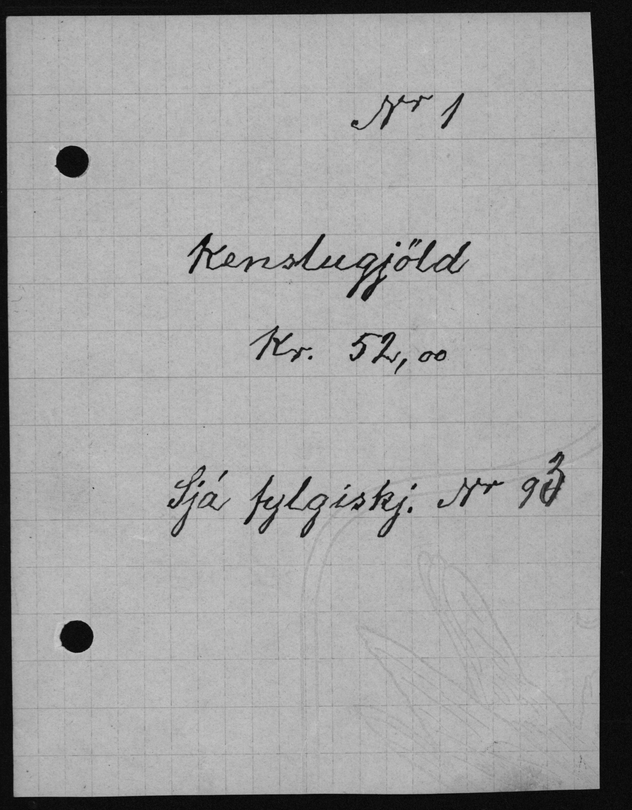 Nr 1
Kenslugjöld
Kr. 52,00
Sjá fylgiskj. Nr 93